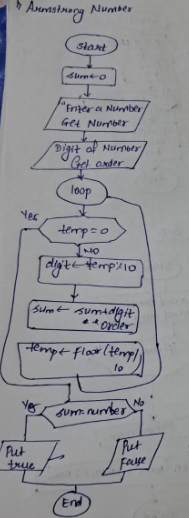 Armstrong Number
Start
sum←0
"Enter a Number
Get Number
Digit of Number
Get order
loop
Yes
temp=0
No
digit←temp%10
sum← sum+digit
**order
temp← floor(temp/
10
Yes
sum=number
No
Put
true
Put
False
End